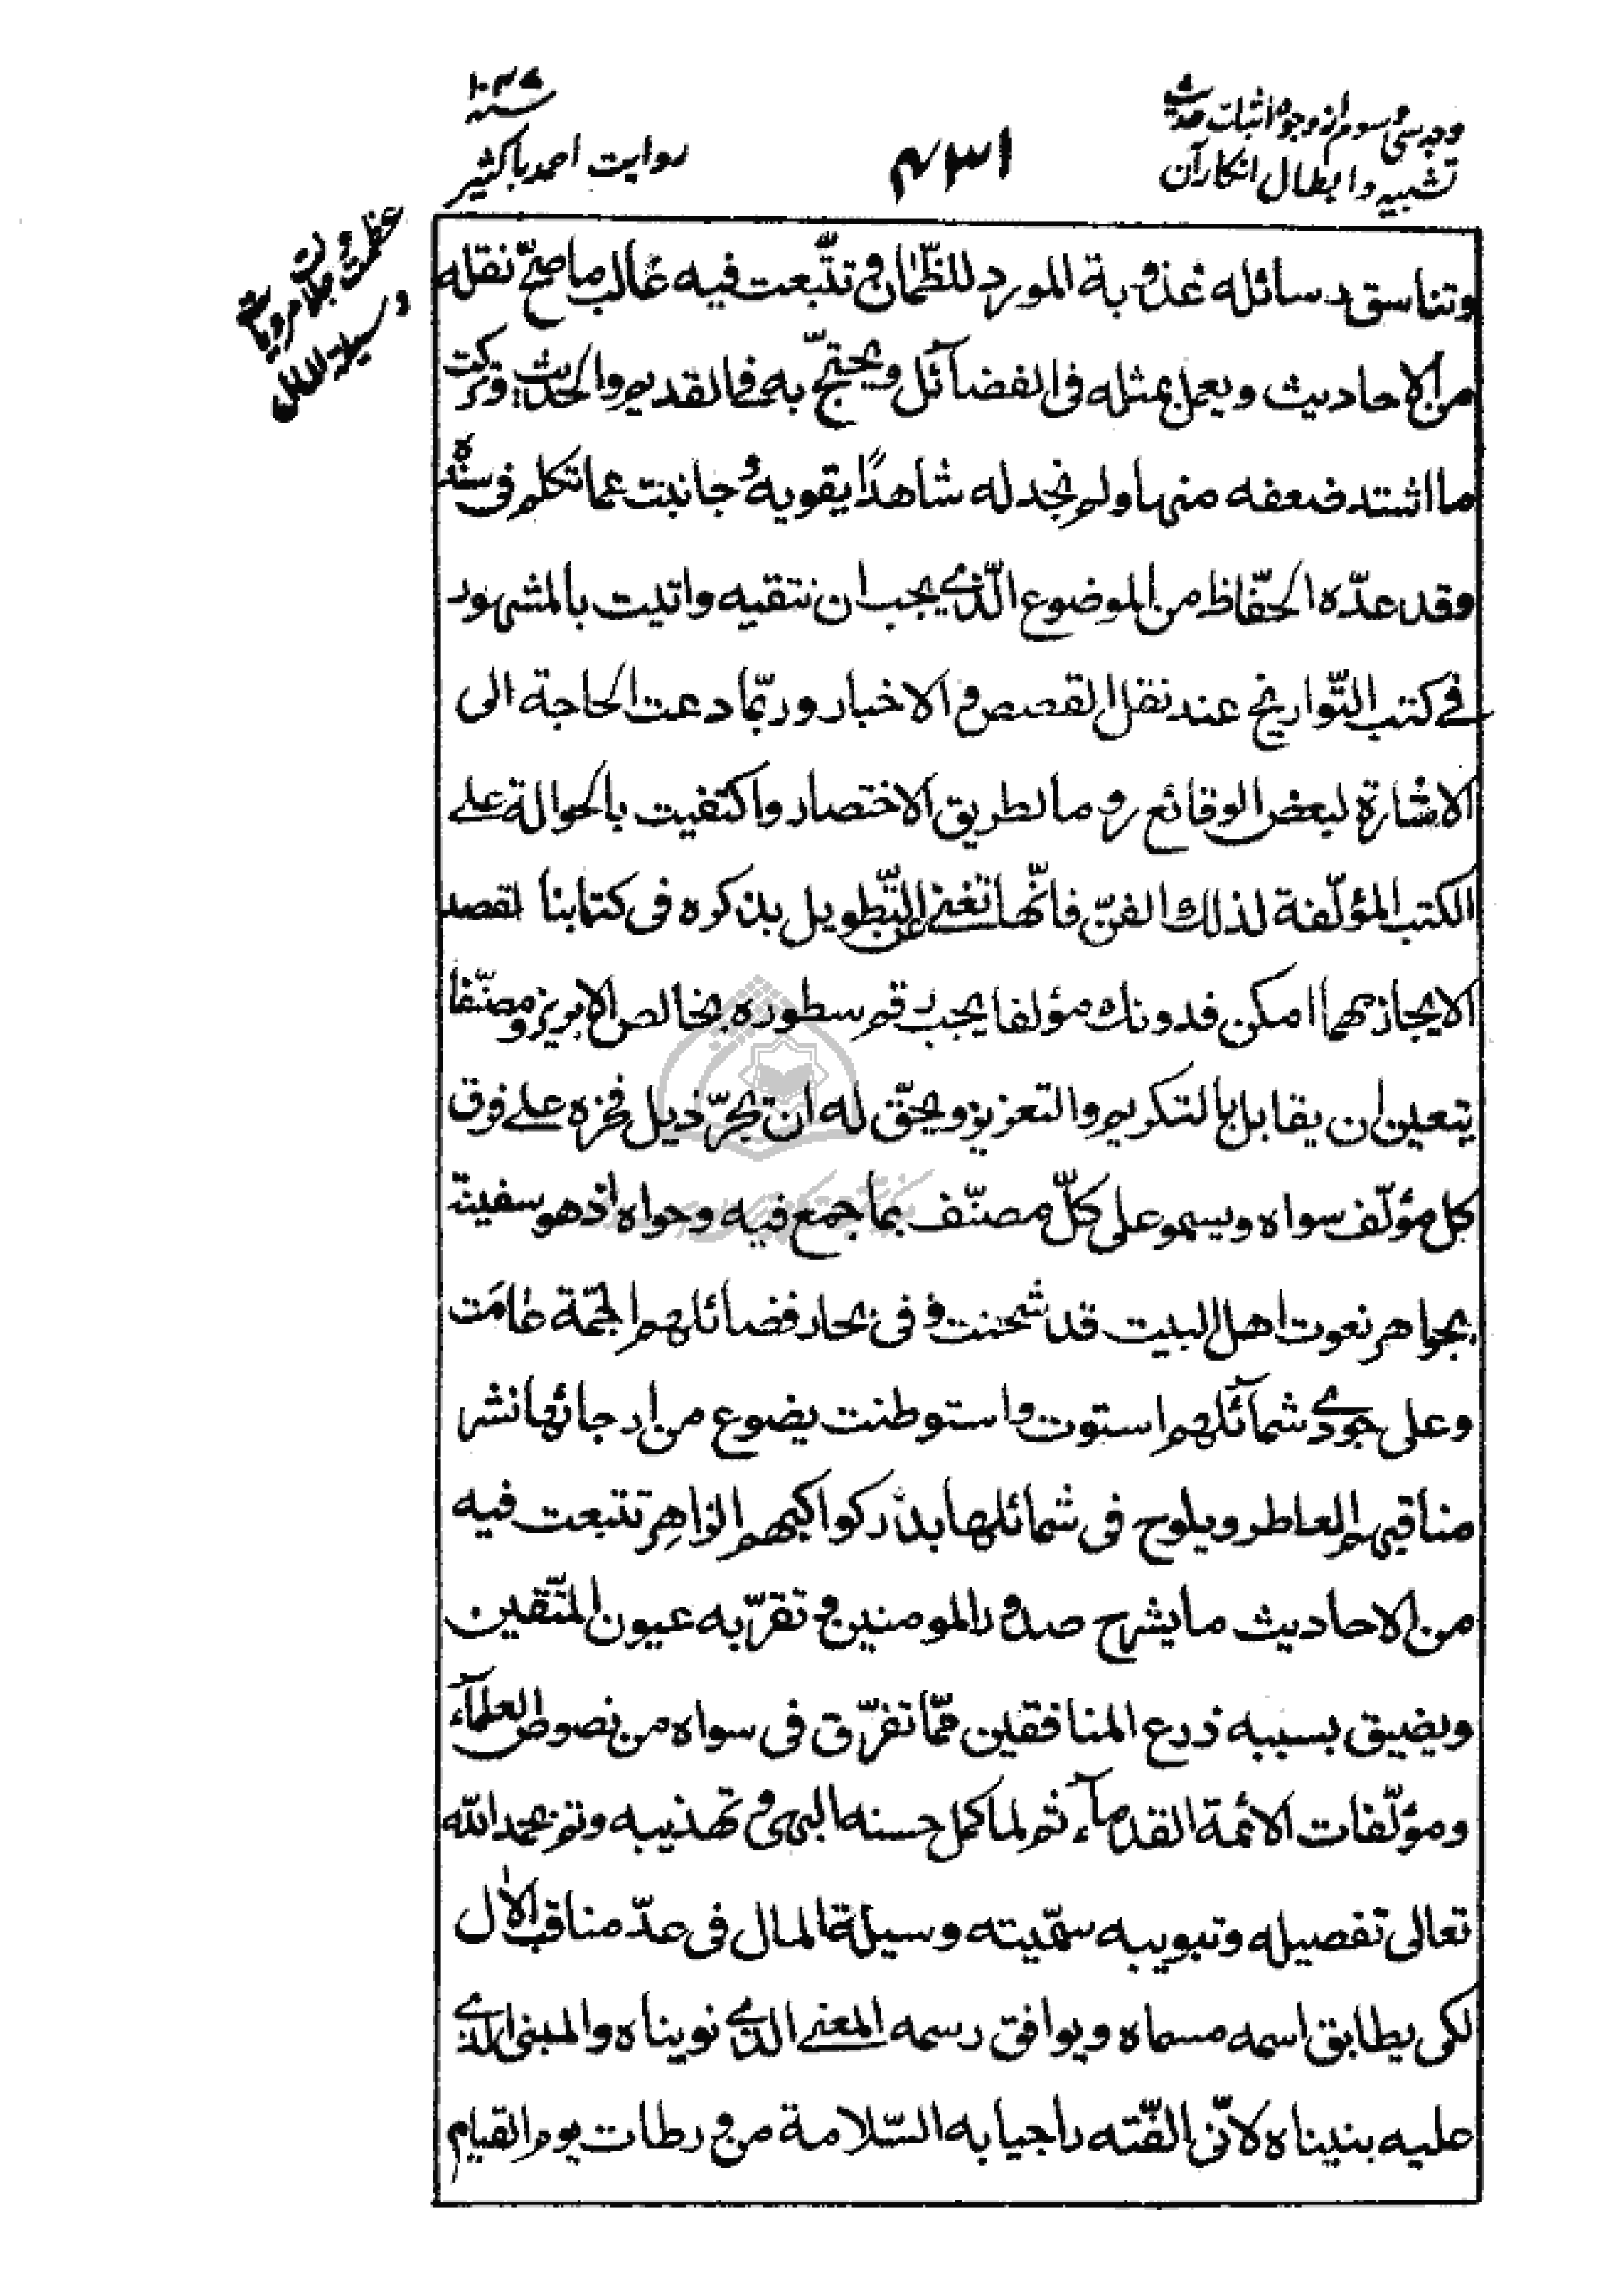 وجه سی و سوم از وجوه اثبات حدیث
تشبیه و ابطال انکار آن
۴۳۱
سنه ۱۰۳۷
روایت احمد باکثیر
عظمت و جلالت مرویات
وسیلة المآل
وتناسق رسائله عذوبة المورد للظّمان وتتّبعت فیه غالب ما صحّ نقله
من الاحادیث ویعمل بمثله فی الفضآئل ویحتجّ به فی القدیم والحدیث وترکت
ما اشتد ضعفه منها ولم نجد له شاهدًا یقویه وجانبت عما تکلم فی سنده
وقد عدّه الحفّاظ من الموضوع الّذی یجب ان نتقیه واتیت بالمشهور
فی کتب التّواریخ عند نقل القصص والاخبار وربّما دعت الحاجة الی
الاشارة لبعض الوقائع روما لطریق الاختصار واکتفیت بالحوالة علی
الکتب المؤلّفة لذلک الفنّ فانّها تغنی عن التّطویل بذکره فی کتابنا لقصد
الایجاز مهما امکن فدونک مؤلفا یجب رقم سطوره بخالص الابریز ومصنّفا
یتعین ان یقابل بالتکریم والتعزیز ویحقّ له ان تجرّ ذیل فخره علی فوق
کل مؤلّف سواه ویسمو علی کلّ مصنّف بما جمع فیه وحواه اذ هو سفینة
بجواهر نعوت اهل البیت قد شحنت وفی بحار فضائلهم الجمّة عامت
وعلی جودی شمآئلهم استوت واستوطنت یضوع من ارجائها نشر
مناقبهم العاطر ویلوح فی شمائلها بدر کواکبهم الزاهر تتبعت فیه
من الاحادیث ما یشرح صدور المومنین وتقرّ به عیون المتّقین
ویضیق بسببه ذرع المنافقین ممّا تفرّق فی سواه من نصوص العلمآء
ومؤلّفات الائمة القدمآء ثم لما کمل حسنه البهی وتهذیبه وتم بحمد الله
تعالی تفصیله وتبویبه سمّیته وسیلة المال فی عدّ مناقب الاٰل
لکی یطابق اسمه مسماه ویوافق رسمه المعنی الذی نویناه والمبنی الذی
علیه بنیناه لانّی الّفته راجیا به السّلامة من ورطات یوم القیام